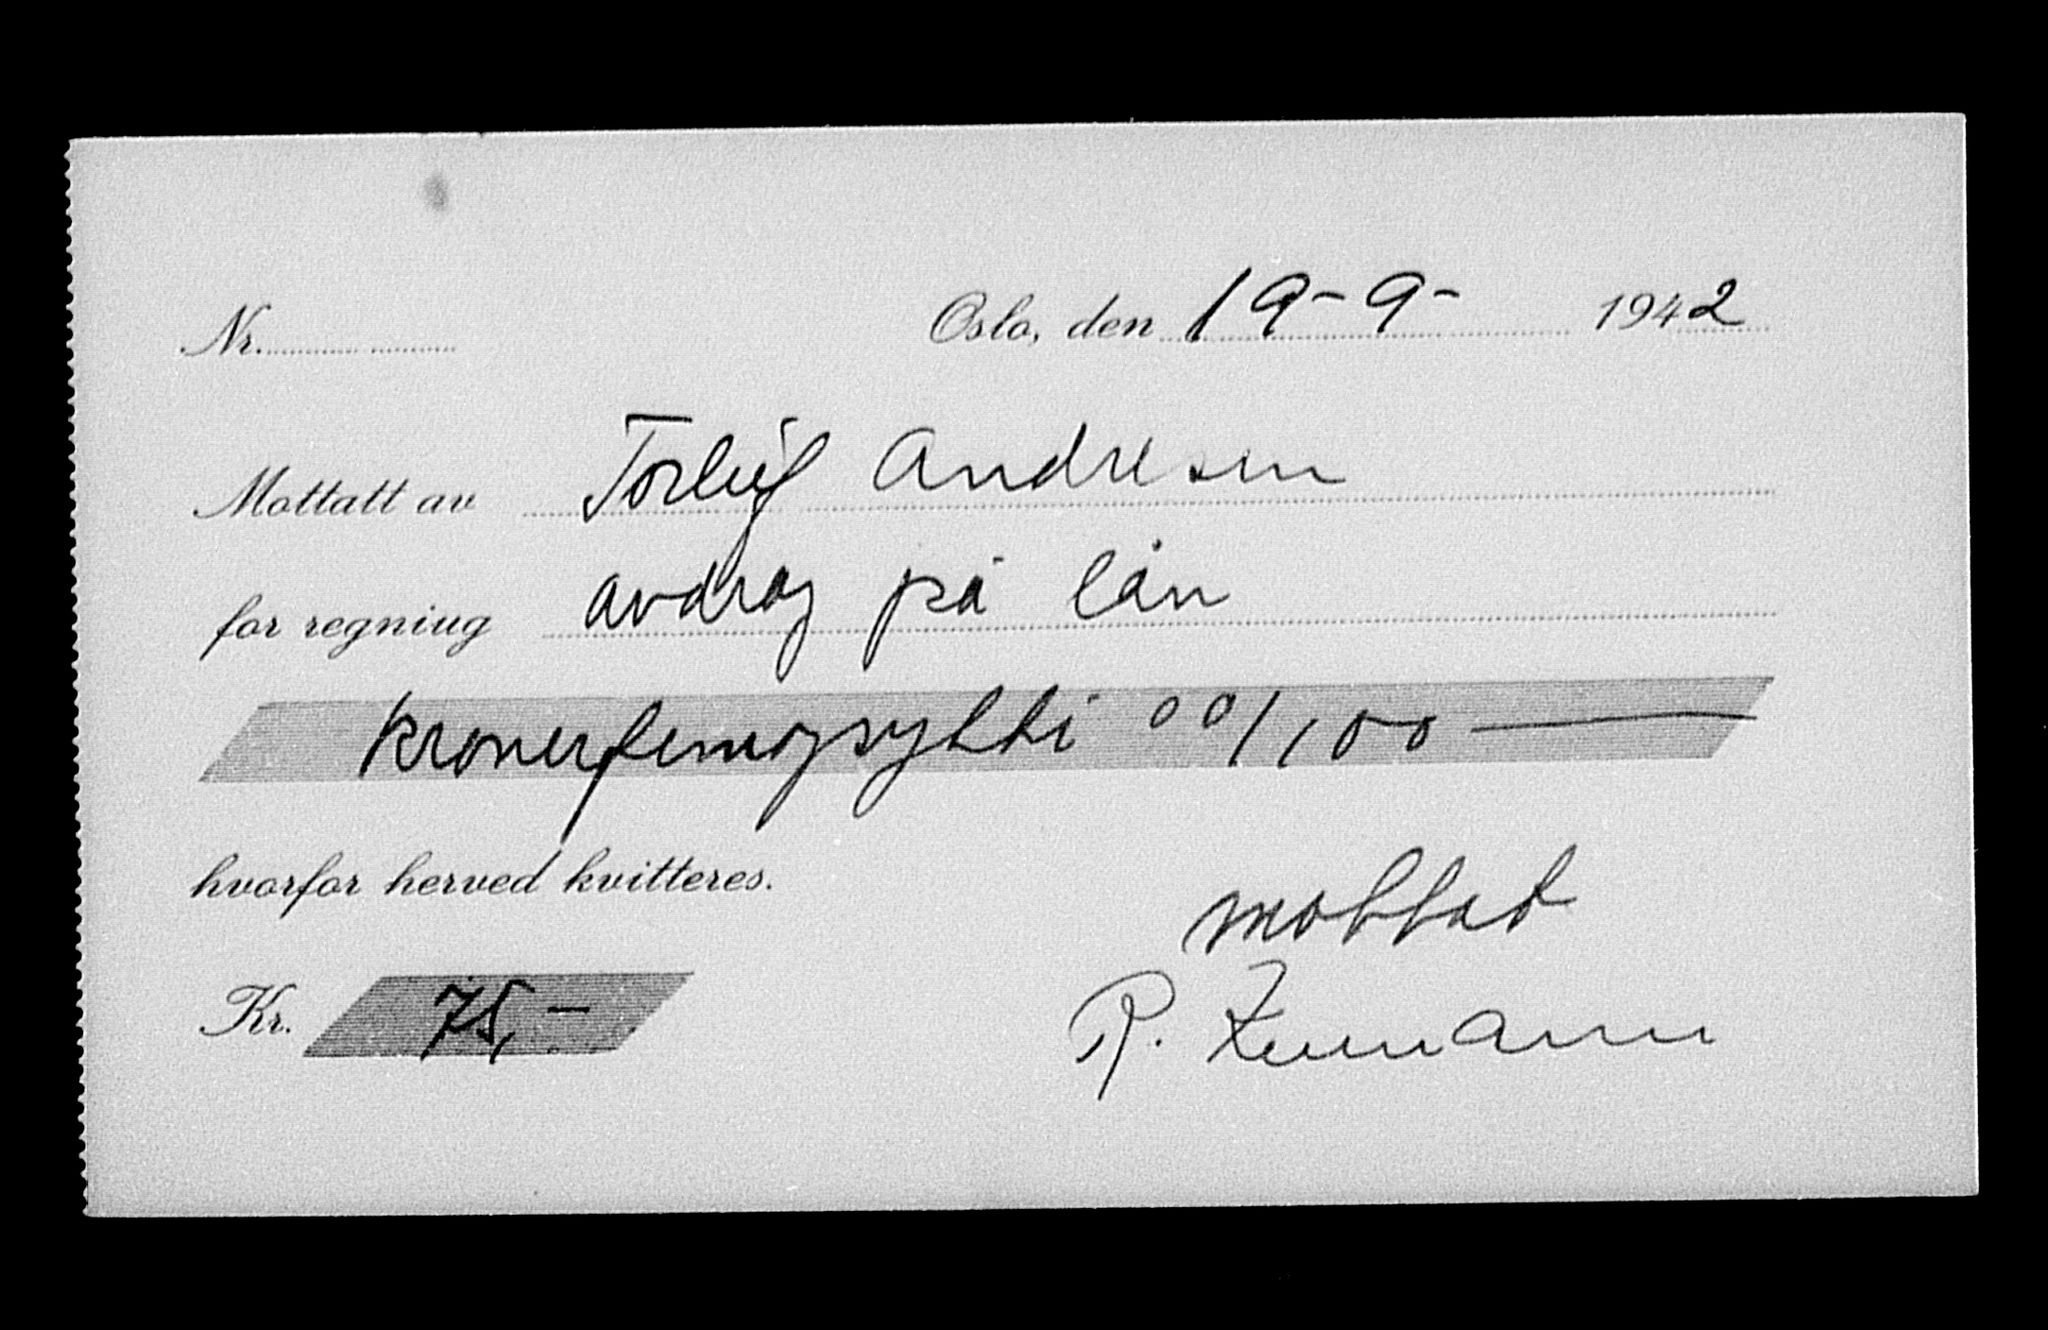 Nr. Oslo, den 19-9- 1942
Mottatt av Torleif Andresen
for regning avdrag på lån
kronerfemogsytti 00/100
hvorfor herved kvitteres.
mottat
Kr. 75,-
R.